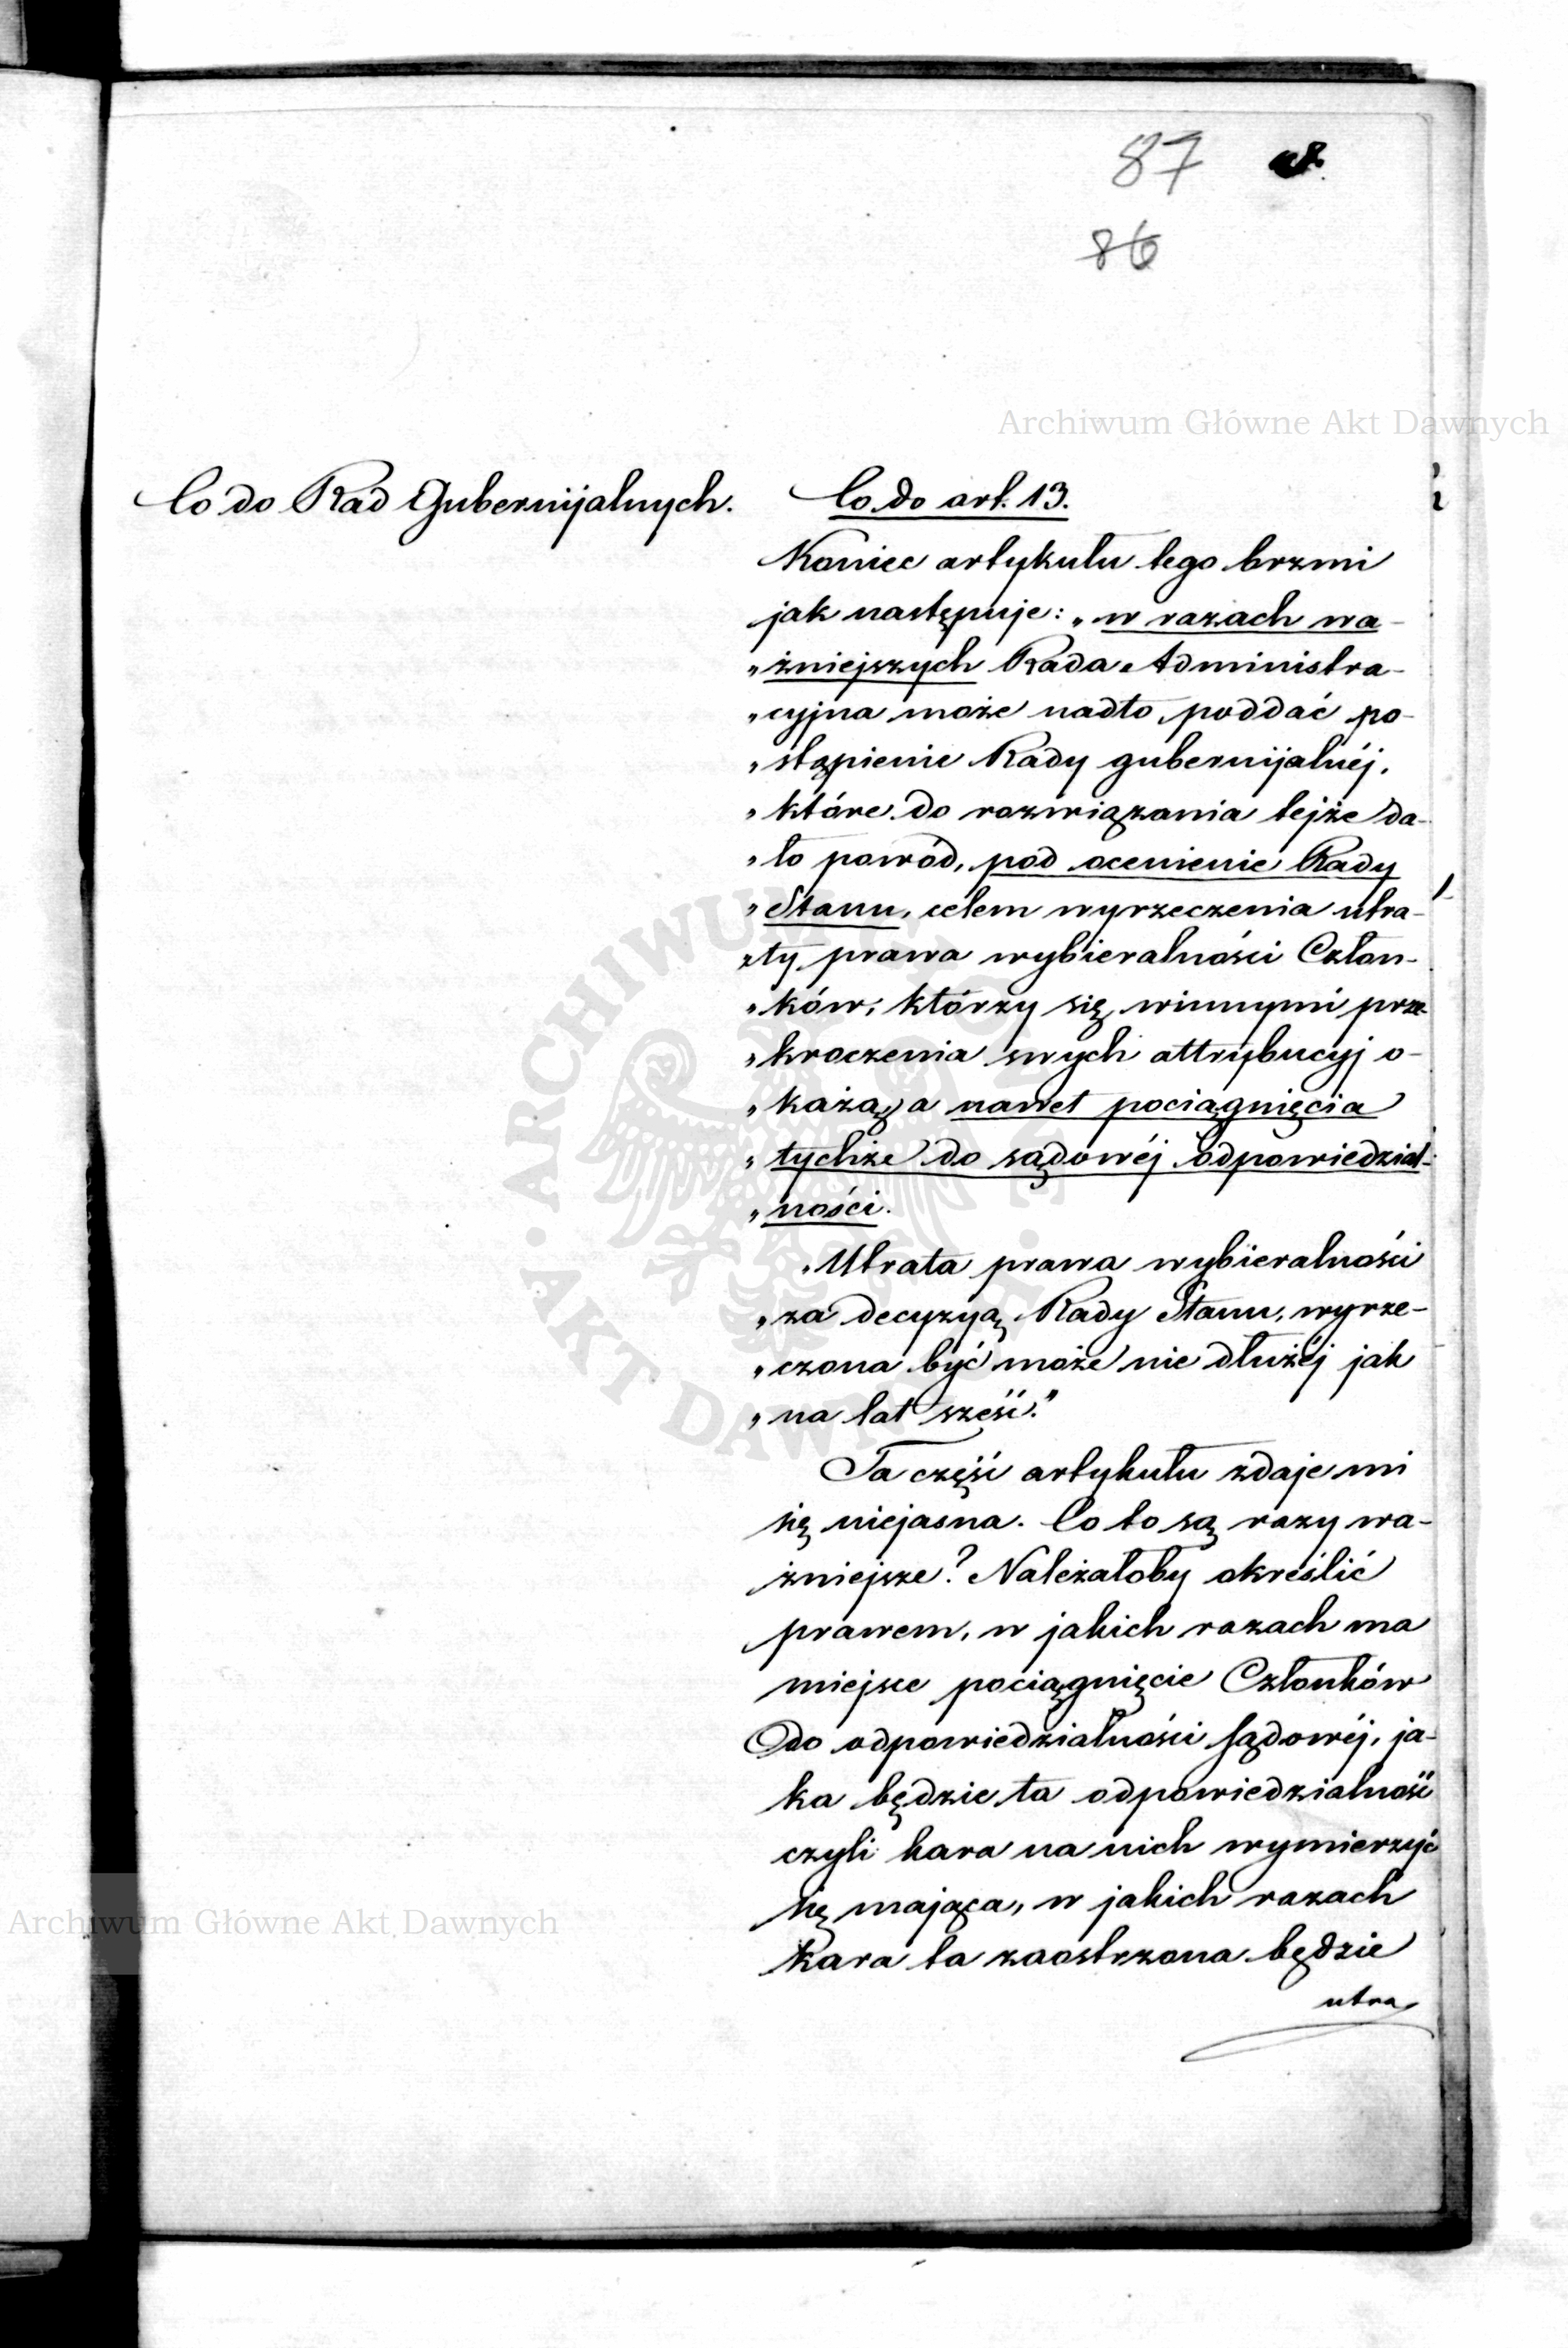 87
86
Archiwum Główne Akt Dawnych
Co do Rad Gubernijalnych.
Co do art. 13.
Koniec artykułu tego brzmi
jak następuje: „w razach wa-
„żniejszych Rada Administra-
„cyjna może nadto, poddać po-
„stąpienie Rady gubernijalnéj,
„które do rozwiązania tejże da-
„ło powód, pod ocenienie Rady
„Stanu, celem wyrzeczenia utra-
„ty prawa wybieralności Człon-
„ków, którzy się winnymi prze-
„kroczenia swych attrybucyj o-
„każą, a nawet pociągnięcia
„tychże do sądowéj odpowiedzial-
„ności.
„Utrata prawa wybieralności
„za decyzyą Rady Stanu, wyrze-
„czona być może nie dłużéj jak
„na lat sześć."
Ta część artykułu zdaje mi
się niejasna. Co to są razy wa-
żniejsze? Należałoby określić
prawem, w jakich razach ma
miejsce pociągnięcie Członków
do odpowiedzialności sądowéj, ja-
ka będzie ta odpowiedzialność
czyli kara na nich wymierzyć
się mająca, w jakich razach
kara ta zaostrzona będzie
utra
Archiwum Główne Akt Dawnych
ARCHIWUM GŁÓWNE
AKT DAWNYCH